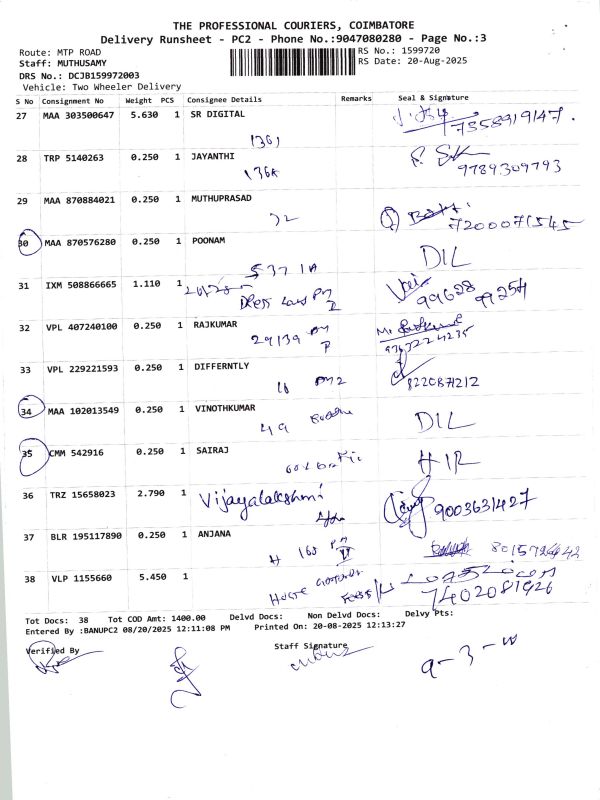 THE PROFESSIONAL COURIERS, COIMBATORE
Delivery Runsheet - PC2 - Phone No.:9047080280 - Page No.:3
Route: MTP ROAD RS No.: 1599720
Staff: MUTHUSAMY RS Date: 20-Aug-2025
DRS No.: DCJB159972003
Vehicle: Two Wheeler Delivery
S No Consignment No Weight PCS Consignee Details Remarks Seal & Signature
27 MAA 303500647 5.630 1 SR DIGITAL
1361 7358919147.
28 TRP 5140263 0.250 1 JAYANTHI
136A 9789309793
29 MAA 870884021 0.250 1 MUTHUPRASAD
72 7200071545
30 MAA 870576280 0.250 1 POONAM DIL
537 1A
31 IXM 508866665 1.110 1
99628 99254
32 VPL 407240100 0.250 1 RAJKUMAR
29/139
33 VPL 229221593 0.250 1 DIFFERNTLY
8220871212
34 MAA 102013549 0.250 1 VINOTHKUMAR DIL
49
35 CMM 542916 0.250 1 SAIRAJ
36 TRZ 15658023 2.790 1 Vijayalakshmi
9003631427
37 BLR 195117890 0.250 1 ANJANA
H 160
38 VLP 1155660 5.450 1
7402081926
Tot Docs: 38 Tot COD Amt: 1400.00 Delvd Docs: Non Delvd Docs: Delvy Pts:
Entered By :BANUPC2 08/20/2025 12:11:08 PM Printed On: 20-08-2025 12:13:27
Verified By Staff Signature
9-3-W